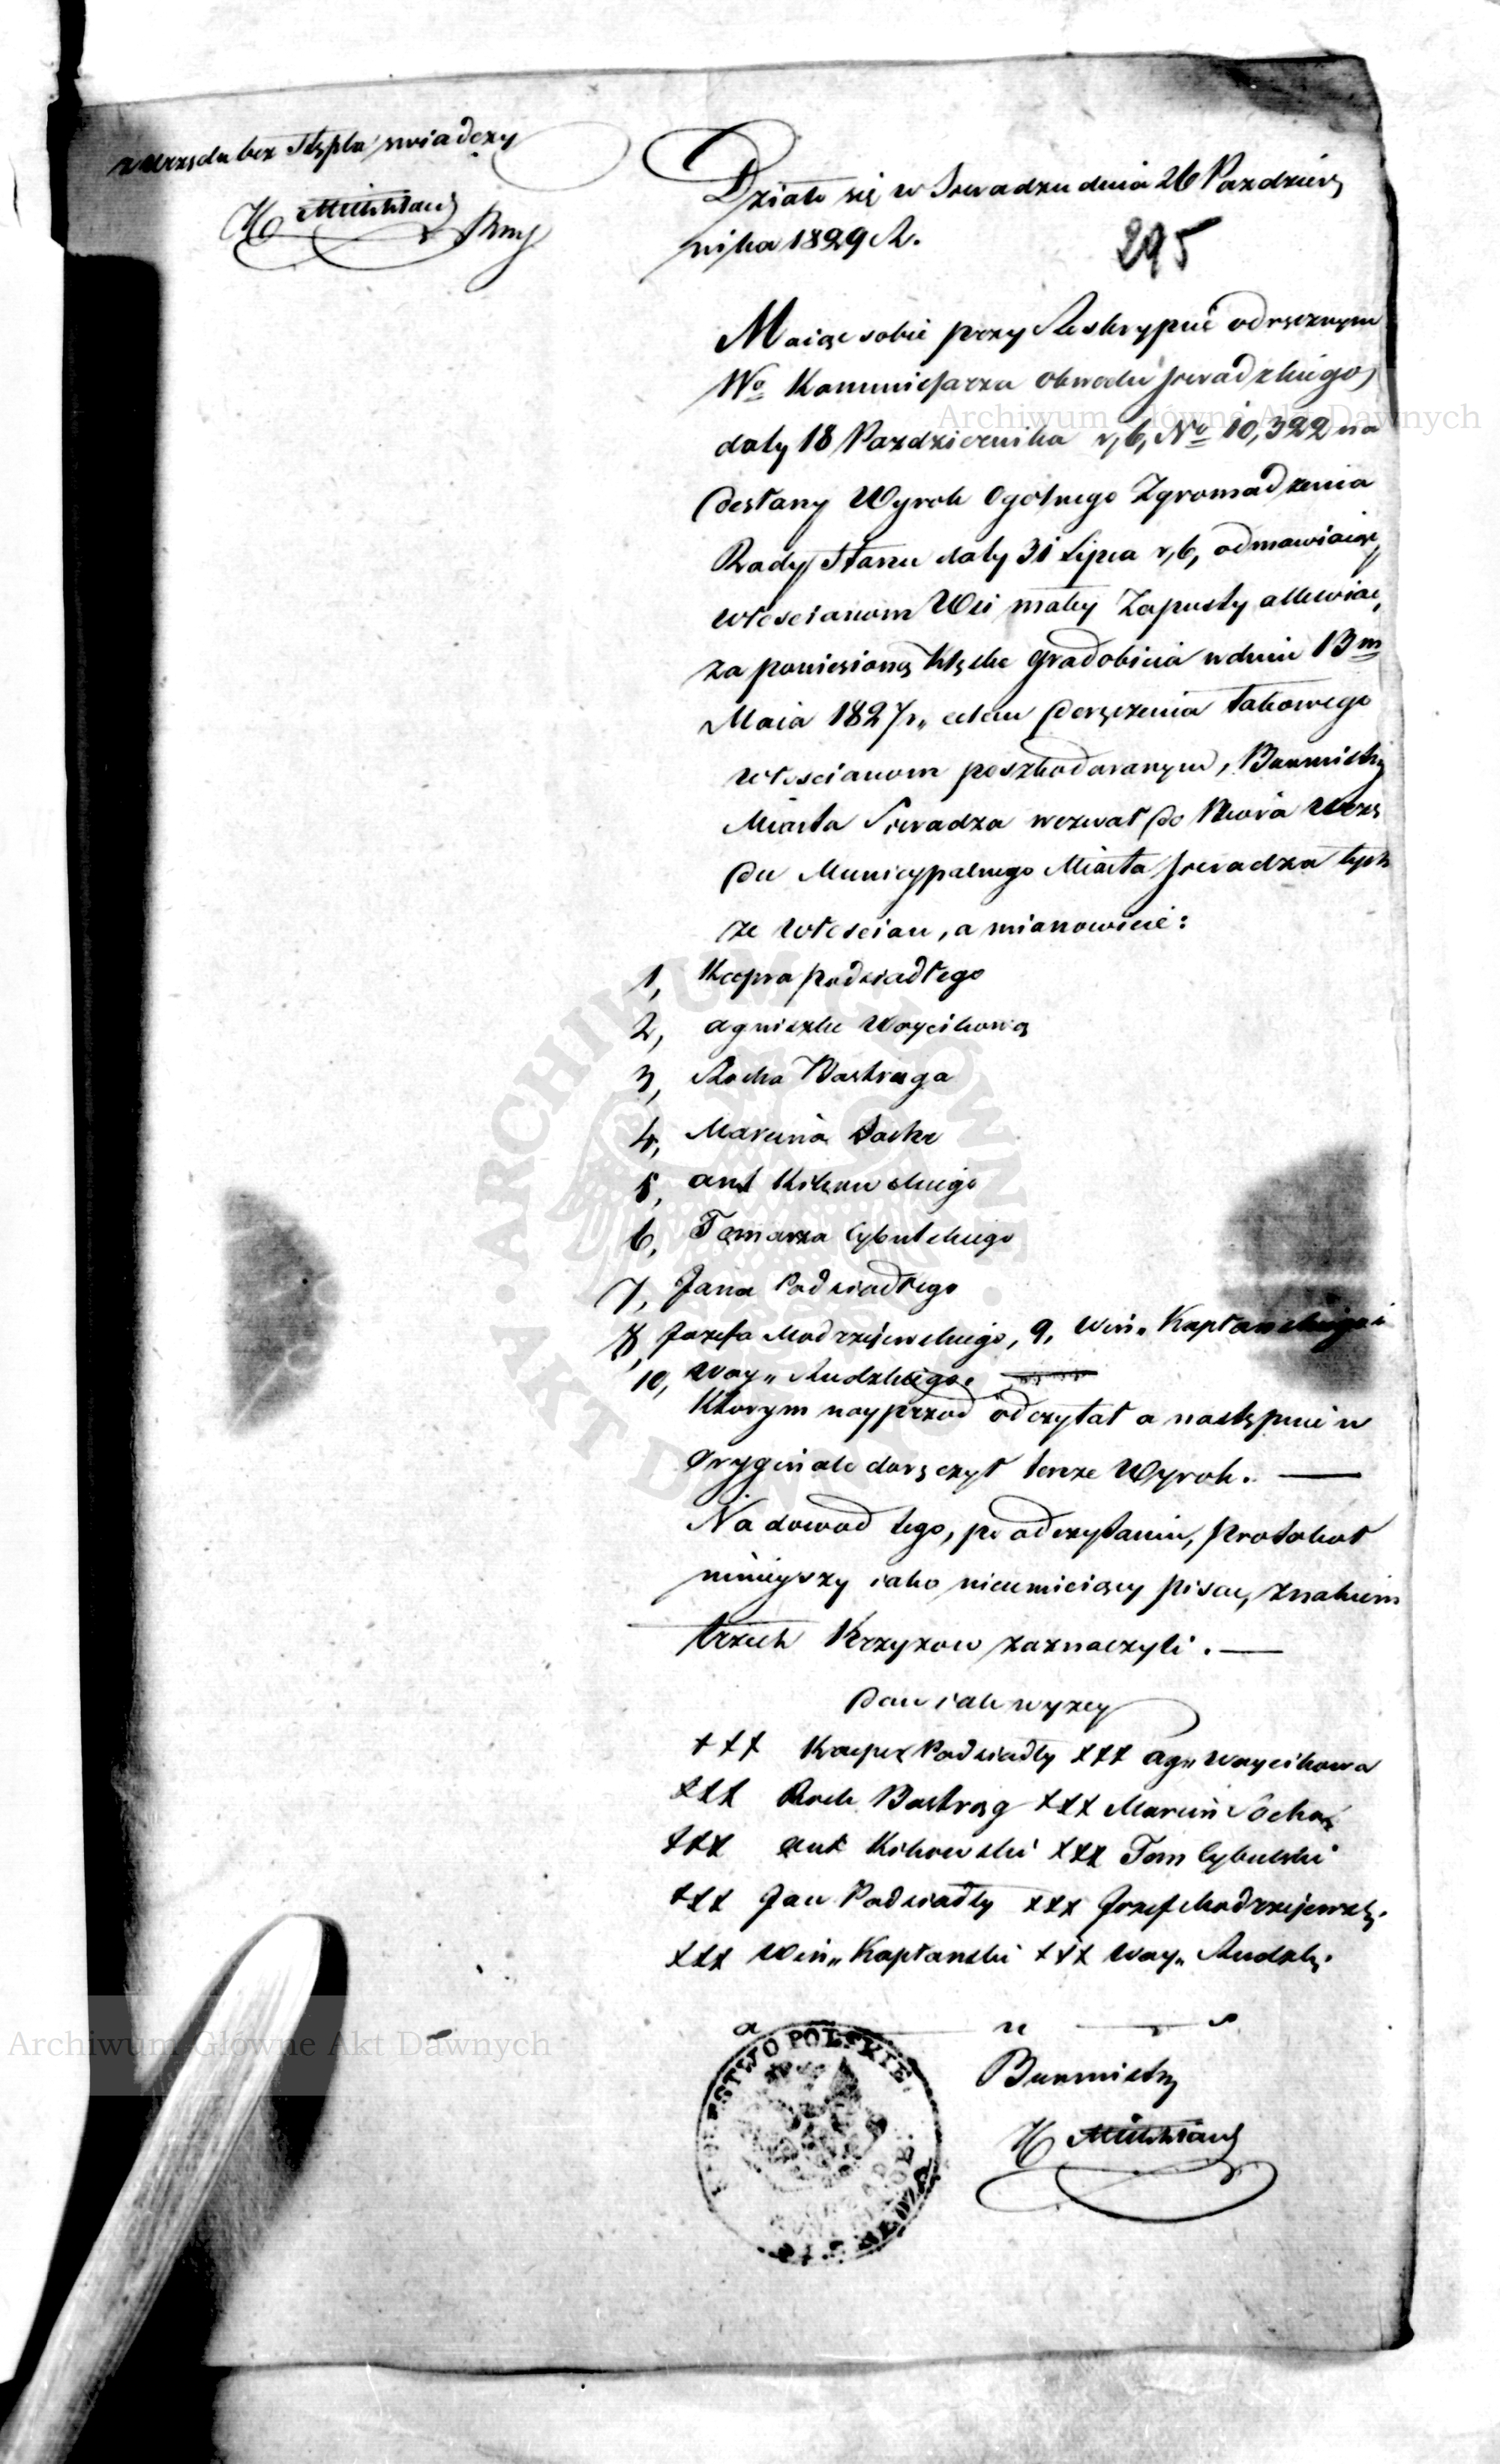 z urzędu bez Stępla swiadczy
Działo się w Sieradzu dnia 26 Pazdzier
nika 1829 R.
295
Maiąc sobie przy Reskrypcie odręcznym
Wo Kommissarza Obwodu Sieradzkiego
daty 18 Pazdziernika r, b, No 10,322 na
desłany Wyrok Ogolnego Zgromadzenia
Rady Stanu daty 31 Lipca r, b, odmawiaiący
włoscianom Wsi małey Zapusty allewiac,
za poniesioną klęskę gradobicia w dniu 13m
Maia 1827 r„ celem doręczenia takowego
włoscianom poszkodowanym, Burmistrz
Miasta Sieradza wezwał do Biora Urzę
du Municypalnego Miasta Sieradza tych
że włoscian, a mianowicie:
1, Kacpra Podsiadłego
2, Agnieszkę Woycikową
3, Rocha Bastrąga
4, Marcina Sochę
5, Ant Kikowskiego
6, Tomasza Cybulskiego
7, Jana Podsiadłego
8, Jozefa Modrzejewskiego, 9, Win„ Kapłanskiego i
10, Woy„ Rudzkiego.
Ktorym nayprzod odczytał a następnie w
oryginale doręczył tenże Wyrok. —
Na dowod tego, po odczytaniu, Protokoł
ninieyszy iako nieumieiący pisac, znakiem
trzech Krzyzow zaznaczyli. —
dan iak wyzey
+++ Kacper Podsiadły +++ Ag„ Woycikowa
+++ Roch Bastrąg +++ Marcin Socha
+++ Ant Kikowski +++ Tom Cybulski
+++ Jan Podsiadły +++ Jozef Modrzejewski
+++ Win„ Kapłanski +++ Woy„ Rudzki
a u s
Burmistrz
KROLESTWO POLSKIE
Archiwum Główne Akt Dawnych
Archiwum Główne Akt Dawnych
ARCHIWUM GŁÓWNE AKT DAWNYCH